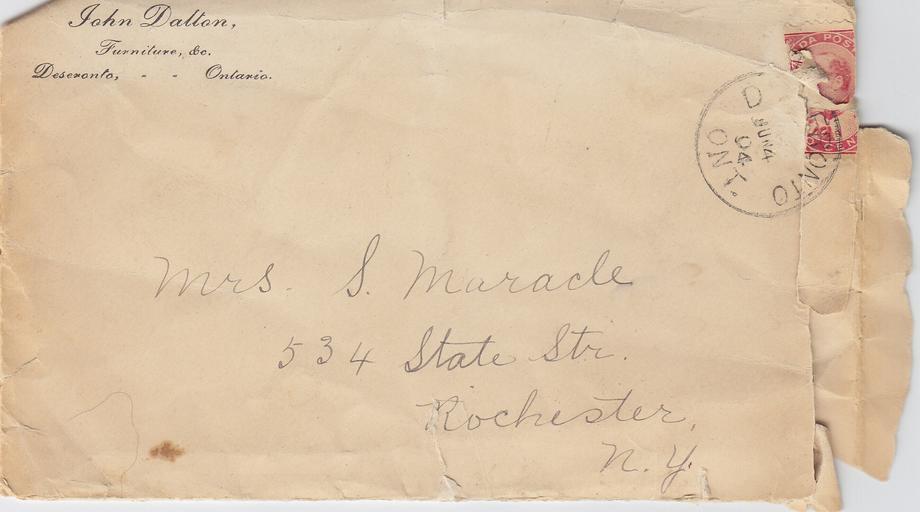 John Dalton,
Furniture, &c.
Deseronto, - - Ontario.
DA POS
D
JUN 4
04
ONT.
ONTO
Mrs. S. Maracle
534 State Str.
Rochester,
N.Y.